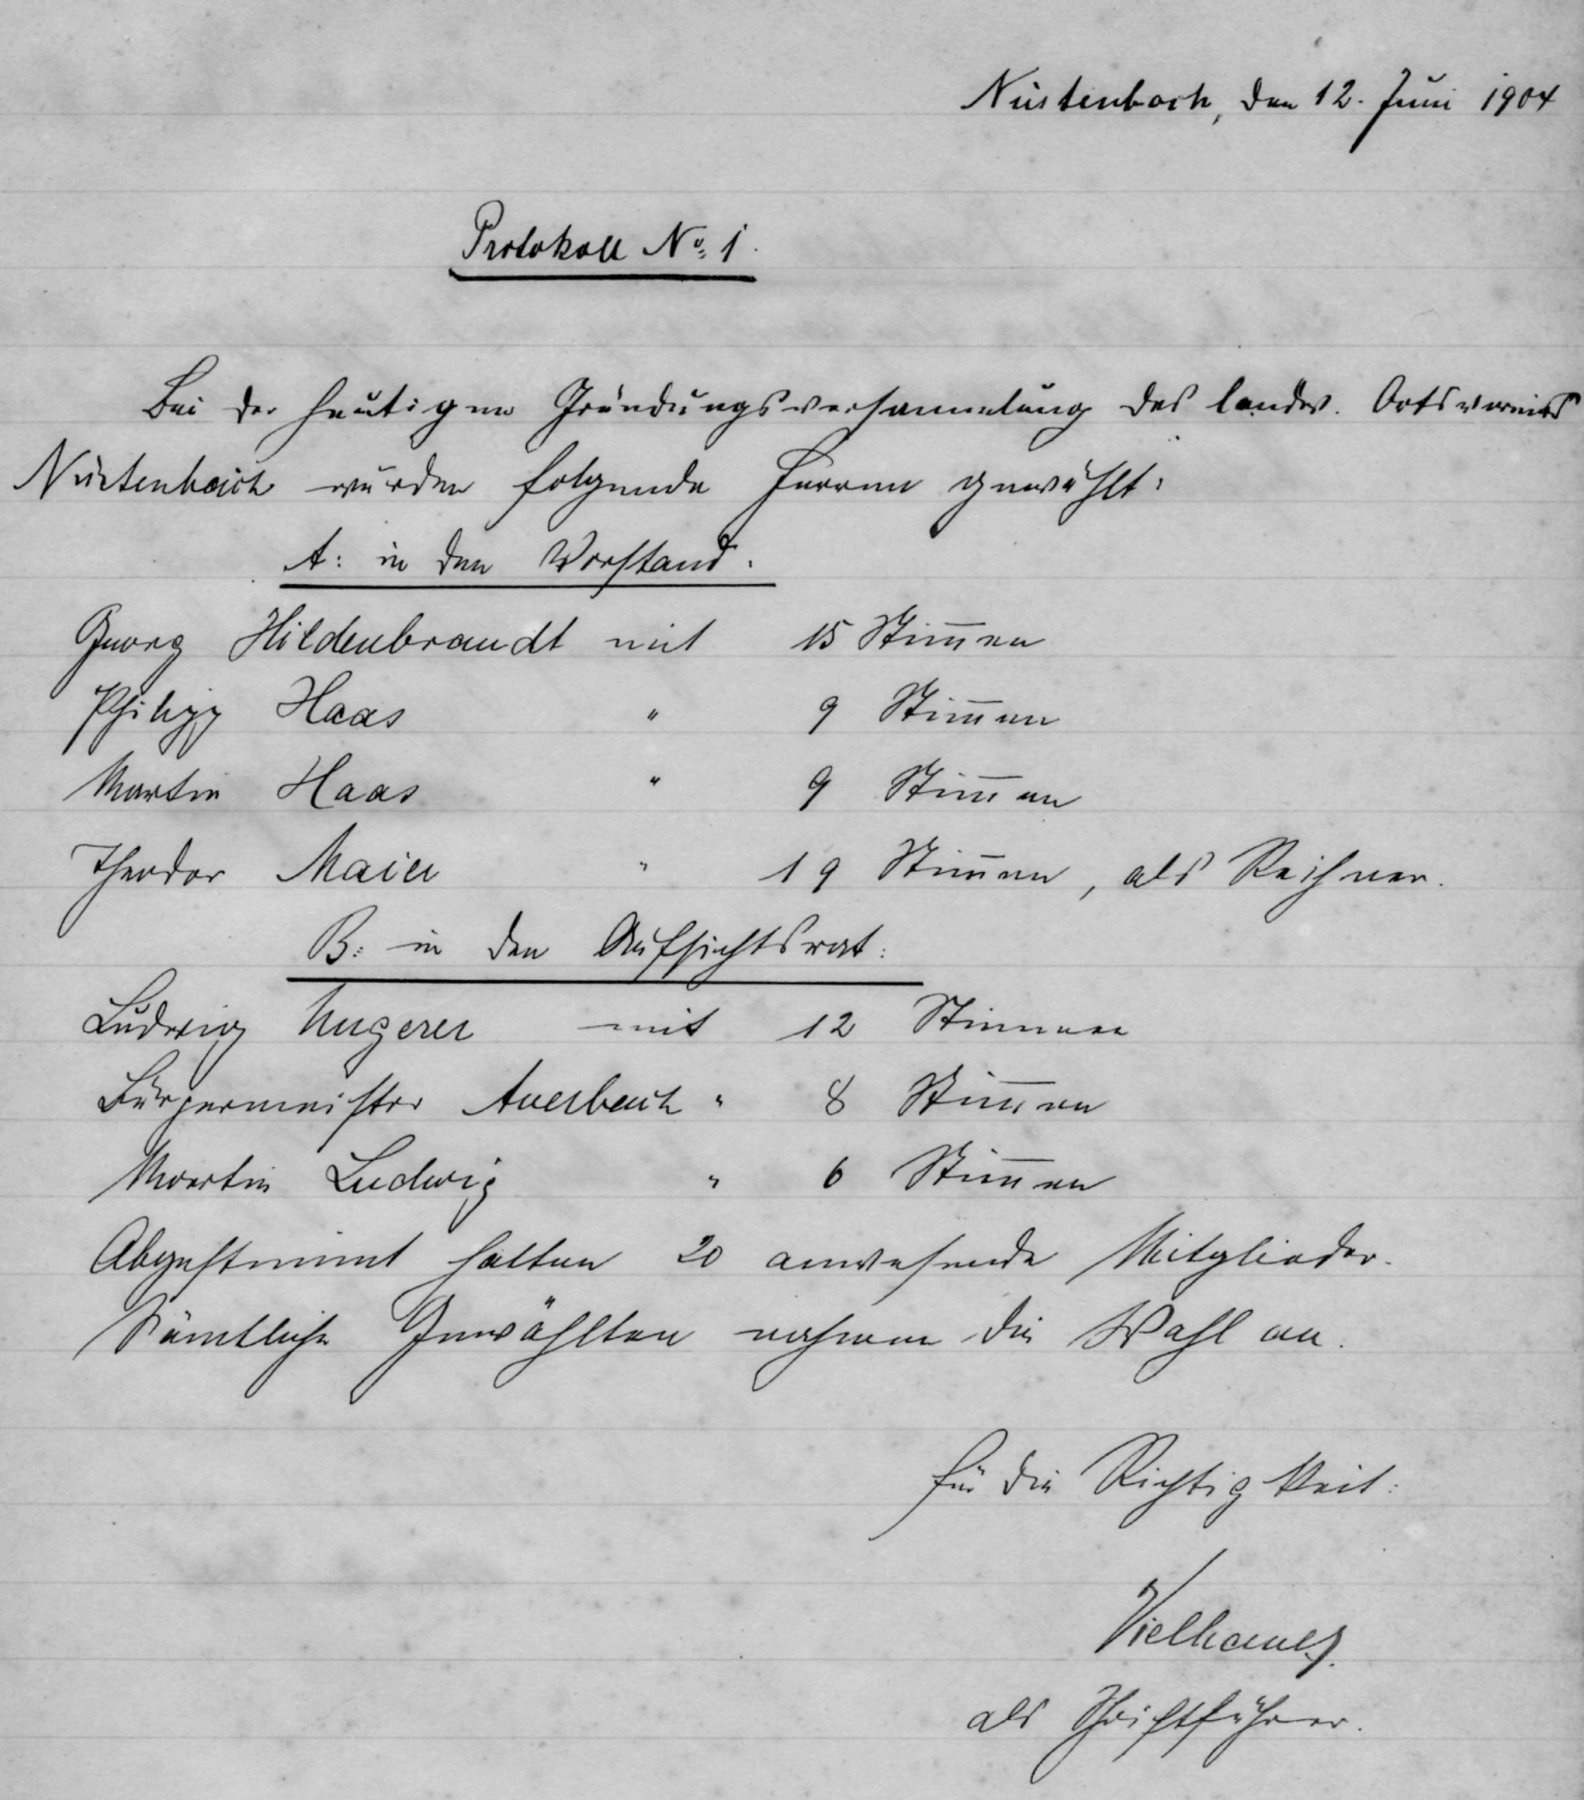 Nüstenbach, den 12. Juni 1904
Protokoll No. 1.
Bei der heutigen Gründungsversammlung des landw. Ortsvereins
Nüstenbach wurden folgende Herren gewählt:
A: in den Vorstand.
Georg Hildenbrandt mit 15 Stim̄en
Philipp Haas " 9 Stim̄en
Martin Haas " 9 Stim̄en
Theodor Maier " 19 Stim̄en, als Rechner.
B: in den Aufsichtsrat:
Ludwig mit 12 Stimmen
Bürgermeister Auerbach " 8 Stim̄en
Martin Ludwig " 6 Stim̄en
Abgestimmt hatten 20 anwesende Mitglieder.
Sämtliche Gewählten nahmen die Wahl an.
Für die Richtigkeit:
als Schriftführer.